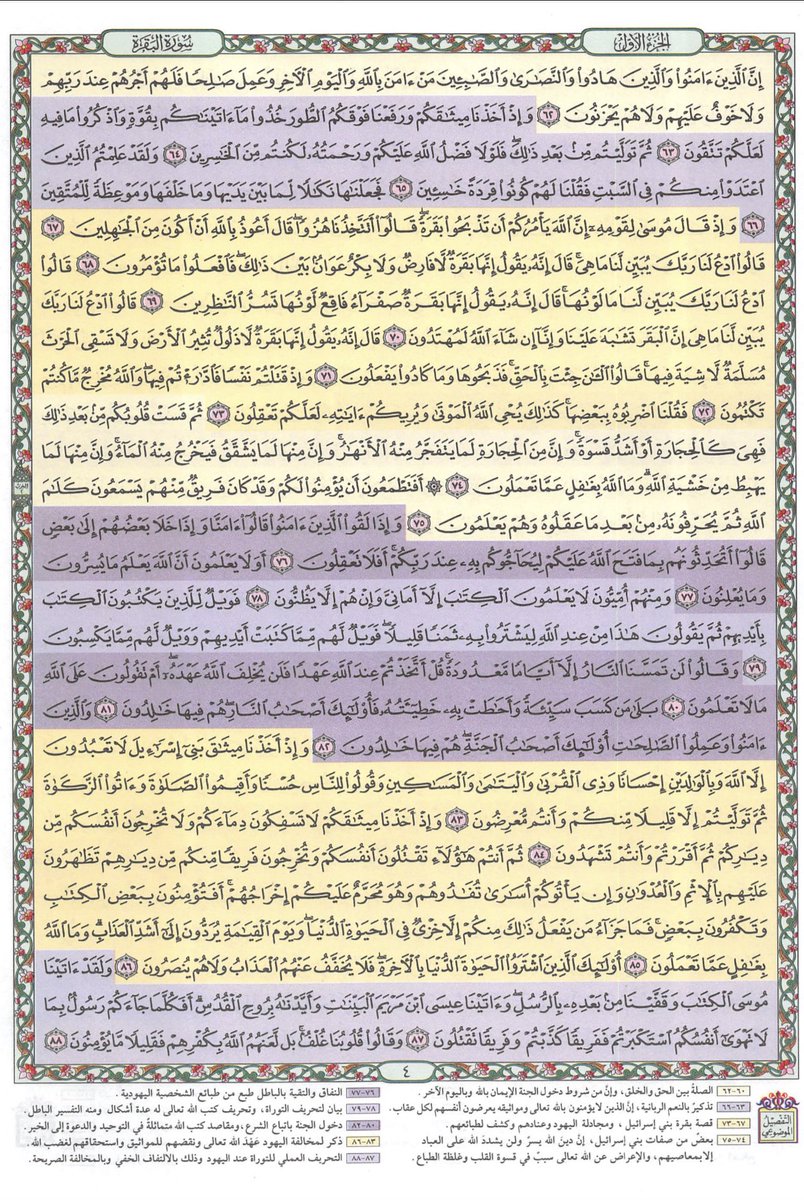 الجزء الأول
سورة البقرة
إِنَّ ٱلَّذِينَ ءَامَنُوا۟ وَٱلَّذِينَ هَادُوا۟ وَٱلنَّصَٰرَىٰ وَٱلصَّٰبِـِٔينَ مَنْ ءَامَنَ بِٱللَّهِ وَٱلْيَوْمِ ٱلْءَاخِرِ وَعَمِلَ صَٰلِحًا فَلَهُمْ أَجْرُهُمْ عِندَ رَبِّهِمْ
وَلَا خَوْفٌ عَلَيْهِمْ وَلَا هُمْ يَحْزَنُونَ ٦٢ وَإِذْ أَخَذْنَا مِيثَٰقَكُمْ وَرَفَعْنَا فَوْقَكُمُ ٱلطُّورَ خُذُوا۟ مَآ ءَاتَيْنَٰكُم بِقُوَّةٍ وَٱذْكُرُوا۟ مَا فِيهِ
لَعَلَّكُمْ تَتَّقُونَ ٦٣ ثُمَّ تَوَلَّيْتُم مِّنۢ بَعْدِ ذَٰلِكَ فَلَوْلَا فَضْلُ ٱللَّهِ عَلَيْكُمْ وَرَحْمَتُهُۥ لَكُنتُم مِّنَ ٱلْخَٰسِرِينَ ٦٤ وَلَقَدْ عَلِمْتُمُ ٱلَّذِينَ
ٱعْتَدَوْا۟ مِنكُمْ فِى ٱلسَّبْتِ فَقُلْنَا لَهُمْ كُونُوا۟ قِرَدَةً خَٰسِـِٔينَ ٦٥ فَجَعَلْنَٰهَا نَكَٰلًا لِّمَا بَيْنَ يَدَيْهَا وَمَا خَلْفَهَا وَمَوْعِظَةً لِّلْمُتَّقِينَ
٦٦ وَإِذْ قَالَ مُوسَىٰ لِقَوْمِهِۦٓ إِنَّ ٱللَّهَ يَأْمُرُكُمْ أَن تَذْبَحُوا۟ بَقَرَةً قَالُوٓا۟ أَتَتَّخِذُنَا هُزُوًا قَالَ أَعُوذُ بِٱللَّهِ أَنْ أَكُونَ مِنَ ٱلْجَٰهِلِينَ ٦٧
قَالُوا۟ ٱدْعُ لَنَا رَبَّكَ يُبَيِّن لَّنَا مَا هِىَ قَالَ إِنَّهُۥ يَقُولُ إِنَّهَا بَقَرَةٌ لَّا فَارِضٌ وَلَا بِكْرٌ عَوَانٌۢ بَيْنَ ذَٰلِكَ فَٱفْعَلُوا۟ مَا تُؤْمَرُونَ ٦٨ قَالُوا۟
ٱدْعُ لَنَا رَبَّكَ يُبَيِّن لَّنَا مَا لَوْنُهَا قَالَ إِنَّهُۥ يَقُولُ إِنَّهَا بَقَرَةٌ صَفْرَآءُ فَاقِعٌ لَّوْنُهَا تَسُرُّ ٱلنَّٰظِرِينَ ٦٩ قَالُوا۟ ٱدْعُ لَنَا رَبَّكَ
يُبَيِّن لَّنَا مَا هِىَ إِنَّ ٱلْبَقَرَ تَشَٰبَهَ عَلَيْنَا وَإِنَّآ إِن شَآءَ ٱللَّهُ لَمُهْتَدُونَ ٧٠ قَالَ إِنَّهُۥ يَقُولُ إِنَّهَا بَقَرَةٌ لَّا ذَلُولٌ تُثِيرُ ٱلْأَرْضَ وَلَا تَسْقِى ٱلْحَرْثَ
مُسَلَّمَةٌ لَّا شِيَةَ فِيهَا قَالُوا۟ ٱلْـَٰٔنَ جِئْتَ بِٱلْحَقِّ فَذَبَحُوهَا وَمَا كَادُوا۟ يَفْعَلُونَ ٧١ وَإِذْ قَتَلْتُمْ نَفْسًا فَٱدَّٰرَْٰٔتُمْ فِيهَا وَٱللَّهُ مُخْرِجٌ مَّا كُنتُمْ
تَكْتُمُونَ ٧٢ فَقُلْنَا ٱضْرِبُوهُ بِبَعْضِهَا كَذَٰلِكَ يُحْىِ ٱللَّهُ ٱلْمَوْتَىٰ وَيُرِيكُمْ ءَايَٰتِهِۦ لَعَلَّكُمْ تَعْقِلُونَ ٧٣ ثُمَّ قَسَتْ قُلُوبُكُم مِّنۢ بَعْدِ ذَٰلِكَ
فَهِىَ كَٱلْحِجَارَةِ أَوْ أَشَدُّ قَسْوَةً وَإِنَّ مِنَ ٱلْحِجَارَةِ لَمَا يَتَفَجَّرُ مِنْهُ ٱلْأَنْهَٰرُ وَإِنَّ مِنْهَا لَمَا يَشَّقَّقُ فَيَخْرُجُ مِنْهُ ٱلْمَآءُ وَإِنَّ مِنْهَا لَمَا
يَهْبِطُ مِنْ خَشْيَةِ ٱللَّهِ وَمَا ٱللَّهُ بِغَٰفِلٍ عَمَّا تَعْمَلُونَ ٧٤ ۞ أَفَتَطْمَعُونَ أَن يُؤْمِنُوا۟ لَكُمْ وَقَدْ كَانَ فَرِيقٌ مِّنْهُمْ يَسْمَعُونَ كَلَٰمَ
ٱللَّهِ ثُمَّ يُحَرِّفُونَهُۥ مِنۢ بَعْدِ مَا عَقَلُوهُ وَهُمْ يَعْلَمُونَ ٧٥ وَإِذَا لَقُوا۟ ٱلَّذِينَ ءَامَنُوا۟ قَالُوٓا۟ ءَامَنَّا وَإِذَا خَلَا بَعْضُهُمْ إِلَىٰ بَعْضٍ
قَالُوٓا۟ أَتُحَدِّثُونَهُم بِمَا فَتَحَ ٱللَّهُ عَلَيْكُمْ لِيُحَآجُّوكُم بِهِۦ عِندَ رَبِّكُمْ أَفَلَا تَعْقِلُونَ ٧٦ أَوَلَا يَعْلَمُونَ أَنَّ ٱللَّهَ يَعْلَمُ مَا يُسِرُّونَ
وَمَا يُعْلِنُونَ ٧٧ وَمِنْهُمْ أُمِّيُّونَ لَا يَعْلَمُونَ ٱلْكِتَٰبَ إِلَّآ أَمَانِىَّ وَإِنْ هُمْ إِلَّا يَظُنُّونَ ٧٨ فَوَيْلٌ لِّلَّذِينَ يَكْتُبُونَ ٱلْكِتَٰبَ
بِأَيْدِيهِمْ ثُمَّ يَقُولُونَ هَٰذَا مِنْ عِندِ ٱللَّهِ لِيَشْتَرُوا۟ بِهِۦ ثَمَنًا قَلِيلًا فَوَيْلٌ لَّهُم مِّمَّا كَتَبَتْ أَيْدِيهِمْ وَوَيْلٌ لَّهُم مِّمَّا يَكْسِبُونَ
٧٩ وَقَالُوا۟ لَن تَمَسَّنَا ٱلنَّارُ إِلَّآ أَيَّامًا مَّعْدُودَةً قُلْ أَتَّخَذْتُمْ عِندَ ٱللَّهِ عَهْدًا فَلَن يُخْلِفَ ٱللَّهُ عَهْدَهُۥٓ أَمْ تَقُولُونَ عَلَى ٱللَّهِ
مَا لَا تَعْلَمُونَ ٨٠ بَلَىٰ مَن كَسَبَ سَيِّئَةً وَأَحَٰطَتْ بِهِۦ خَطِيٓـَٔتُهُۥ فَأُو۟لَٰٓئِكَ أَصْحَٰبُ ٱلنَّارِ هُمْ فِيهَا خَٰلِدُونَ ٨١ وَٱلَّذِينَ
ءَامَنُوا۟ وَعَمِلُوا۟ ٱلصَّٰلِحَٰتِ أُو۟لَٰٓئِكَ أَصْحَٰبُ ٱلْجَنَّةِ هُمْ فِيهَا خَٰلِدُونَ ٨٢ وَإِذْ أَخَذْنَا مِيثَٰقَ بَنِىٓ إِسْرَٰٓءِيلَ لَا تَعْبُدُونَ
إِلَّا ٱللَّهَ وَبِٱلْوَٰلِدَيْنِ إِحْسَانًا وَذِى ٱلْقُرْبَىٰ وَٱلْيَتَٰمَىٰ وَٱلْمَسَٰكِينِ وَقُولُوا۟ لِلنَّاسِ حُسْنًا وَأَقِيمُوا۟ ٱلصَّلَوٰةَ وَءَاتُوا۟ ٱلزَّكَوٰةَ
ثُمَّ تَوَلَّيْتُمْ إِلَّا قَلِيلًا مِّنكُمْ وَأَنتُم مُّعْرِضُونَ ٨٣ وَإِذْ أَخَذْنَا مِيثَٰقَكُمْ لَا تَسْفِكُونَ دِمَآءَكُمْ وَلَا تُخْرِجُونَ أَنفُسَكُم مِّن
دِيَٰرِكُمْ ثُمَّ أَقْرَرْتُمْ وَأَنتُمْ تَشْهَدُونَ ٨٤ ثُمَّ أَنتُمْ هَٰٓؤُلَآءِ تَقْتُلُونَ أَنفُسَكُمْ وَتُخْرِجُونَ فَرِيقًا مِّنكُم مِّن دِيَٰرِهِمْ تَظَٰهَرُونَ
عَلَيْهِم بِٱلْإِثْمِ وَٱلْعُدْوَٰنِ وَإِن يَأْتُوكُمْ أُسَٰرَىٰ تُفَٰدُوهُمْ وَهُوَ مُحَرَّمٌ عَلَيْكُمْ إِخْرَاجُهُمْ أَفَتُؤْمِنُونَ بِبَعْضِ ٱلْكِتَٰبِ
وَتَكْفُرُونَ بِبَعْضٍ فَمَا جَزَآءُ مَن يَفْعَلُ ذَٰلِكَ مِنكُمْ إِلَّا خِزْىٌ فِى ٱلْحَيَوٰةِ ٱلدُّنْيَا وَيَوْمَ ٱلْقِيَٰمَةِ يُرَدُّونَ إِلَىٰٓ أَشَدِّ ٱلْعَذَابِ وَمَا ٱللَّهُ
بِغَٰفِلٍ عَمَّا تَعْمَلُونَ ٨٥ أُو۟لَٰٓئِكَ ٱلَّذِينَ ٱشْتَرَوُا۟ ٱلْحَيَوٰةَ ٱلدُّنْيَا بِٱلْءَاخِرَةِ فَلَا يُخَفَّفُ عَنْهُمُ ٱلْعَذَابُ وَلَا هُمْ يُنصَرُونَ ٨٦ وَلَقَدْ ءَاتَيْنَا
مُوسَى ٱلْكِتَٰبَ وَقَفَّيْنَا مِنۢ بَعْدِهِۦ بِٱلرُّسُلِ وَءَاتَيْنَا عِيسَى ٱبْنَ مَرْيَمَ ٱلْبَيِّنَٰتِ وَأَيَّدْنَٰهُ بِرُوحِ ٱلْقُدُسِ أَفَكُلَّمَا جَآءَكُمْ رَسُولٌۢ بِمَا
لَا تَهْوَىٰٓ أَنفُسُكُمُ ٱسْتَكْبَرْتُمْ فَفَرِيقًا كَذَّبْتُمْ وَفَرِيقًا تَقْتُلُونَ ٨٧ وَقَالُوا۟ قُلُوبُنَا غُلْفٌۢ بَل لَّعَنَهُمُ ٱللَّهُ بِكُفْرِهِمْ فَقَلِيلًا مَّا يُؤْمِنُونَ ٨٨
٤
التفصيل الموضوعي
٦٠-٦٢ الصلةُ بين الحق والخلق، وإنّ من شروط دخول الجنة الإيمان بالله وباليوم الآخر .
٦٣-٦٦ تذكيرٌ بالنعم الربانية، إنّ الذين لا يؤمنون بالله تعالى ومواثيقه يعرضون أنفسهم لكل عقاب .
٦٧-٧٣ قصة بقرة بني إسرائيل، ومجادلة اليهود وعنادهم وكشف لطبائعهم .
٧٤-٧٥ بعضٌ من صفات بني إسرائيل، إنّ دين الله يسرٌ ولن يشددَ الله على العباد
إلا بمعاصيهم، والإعراض عن الله تعالى سببٌ في قسوة القلب وغلظة الطباع .
٧٦-٧٧ النفاق والتقية بالباطل طبع من طبائع الشخصية اليهودية .
٧٨-٧٩ بيان لتحريف التوراة، وتحريف كتب الله تعالى له عدة أشكال ومنه التفسير الباطل.
٨٠-٨٢ دخول الجنة باتباع الشرع، ومقاصد كتب الله متماثلةٌ في التوحيد والدعوة إلى الخير.
٨٣-٨٦ ذكر لمخالفة اليهود عَهْدَ الله تعالى ونقضهم للمواثيق واستحقاقهم لغضب الله .
٨٧-٨٨ التحريف العملي للتوراة عند اليهود وذلك بالالتفاف الخفي وبالمخالفة الصريحة.